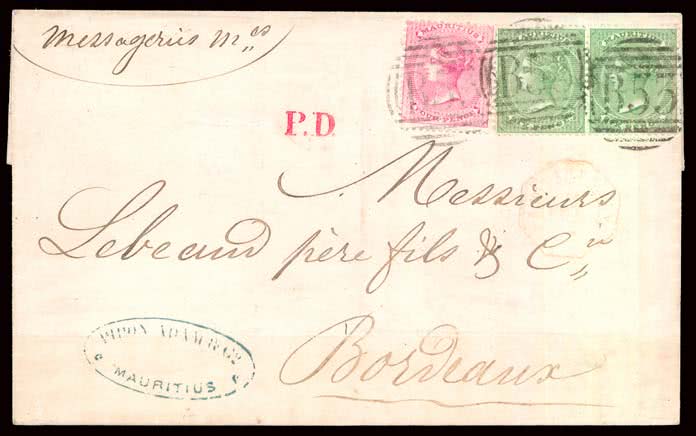 Messageries M^es
MAURITIUS
FOUR PENCE
SIX PENCE
B53
B53
P.D.
Messieurs
Lebeaud père fils & Cie
Bordeaux
PIPON ADAM & Co.
MAURITIUS